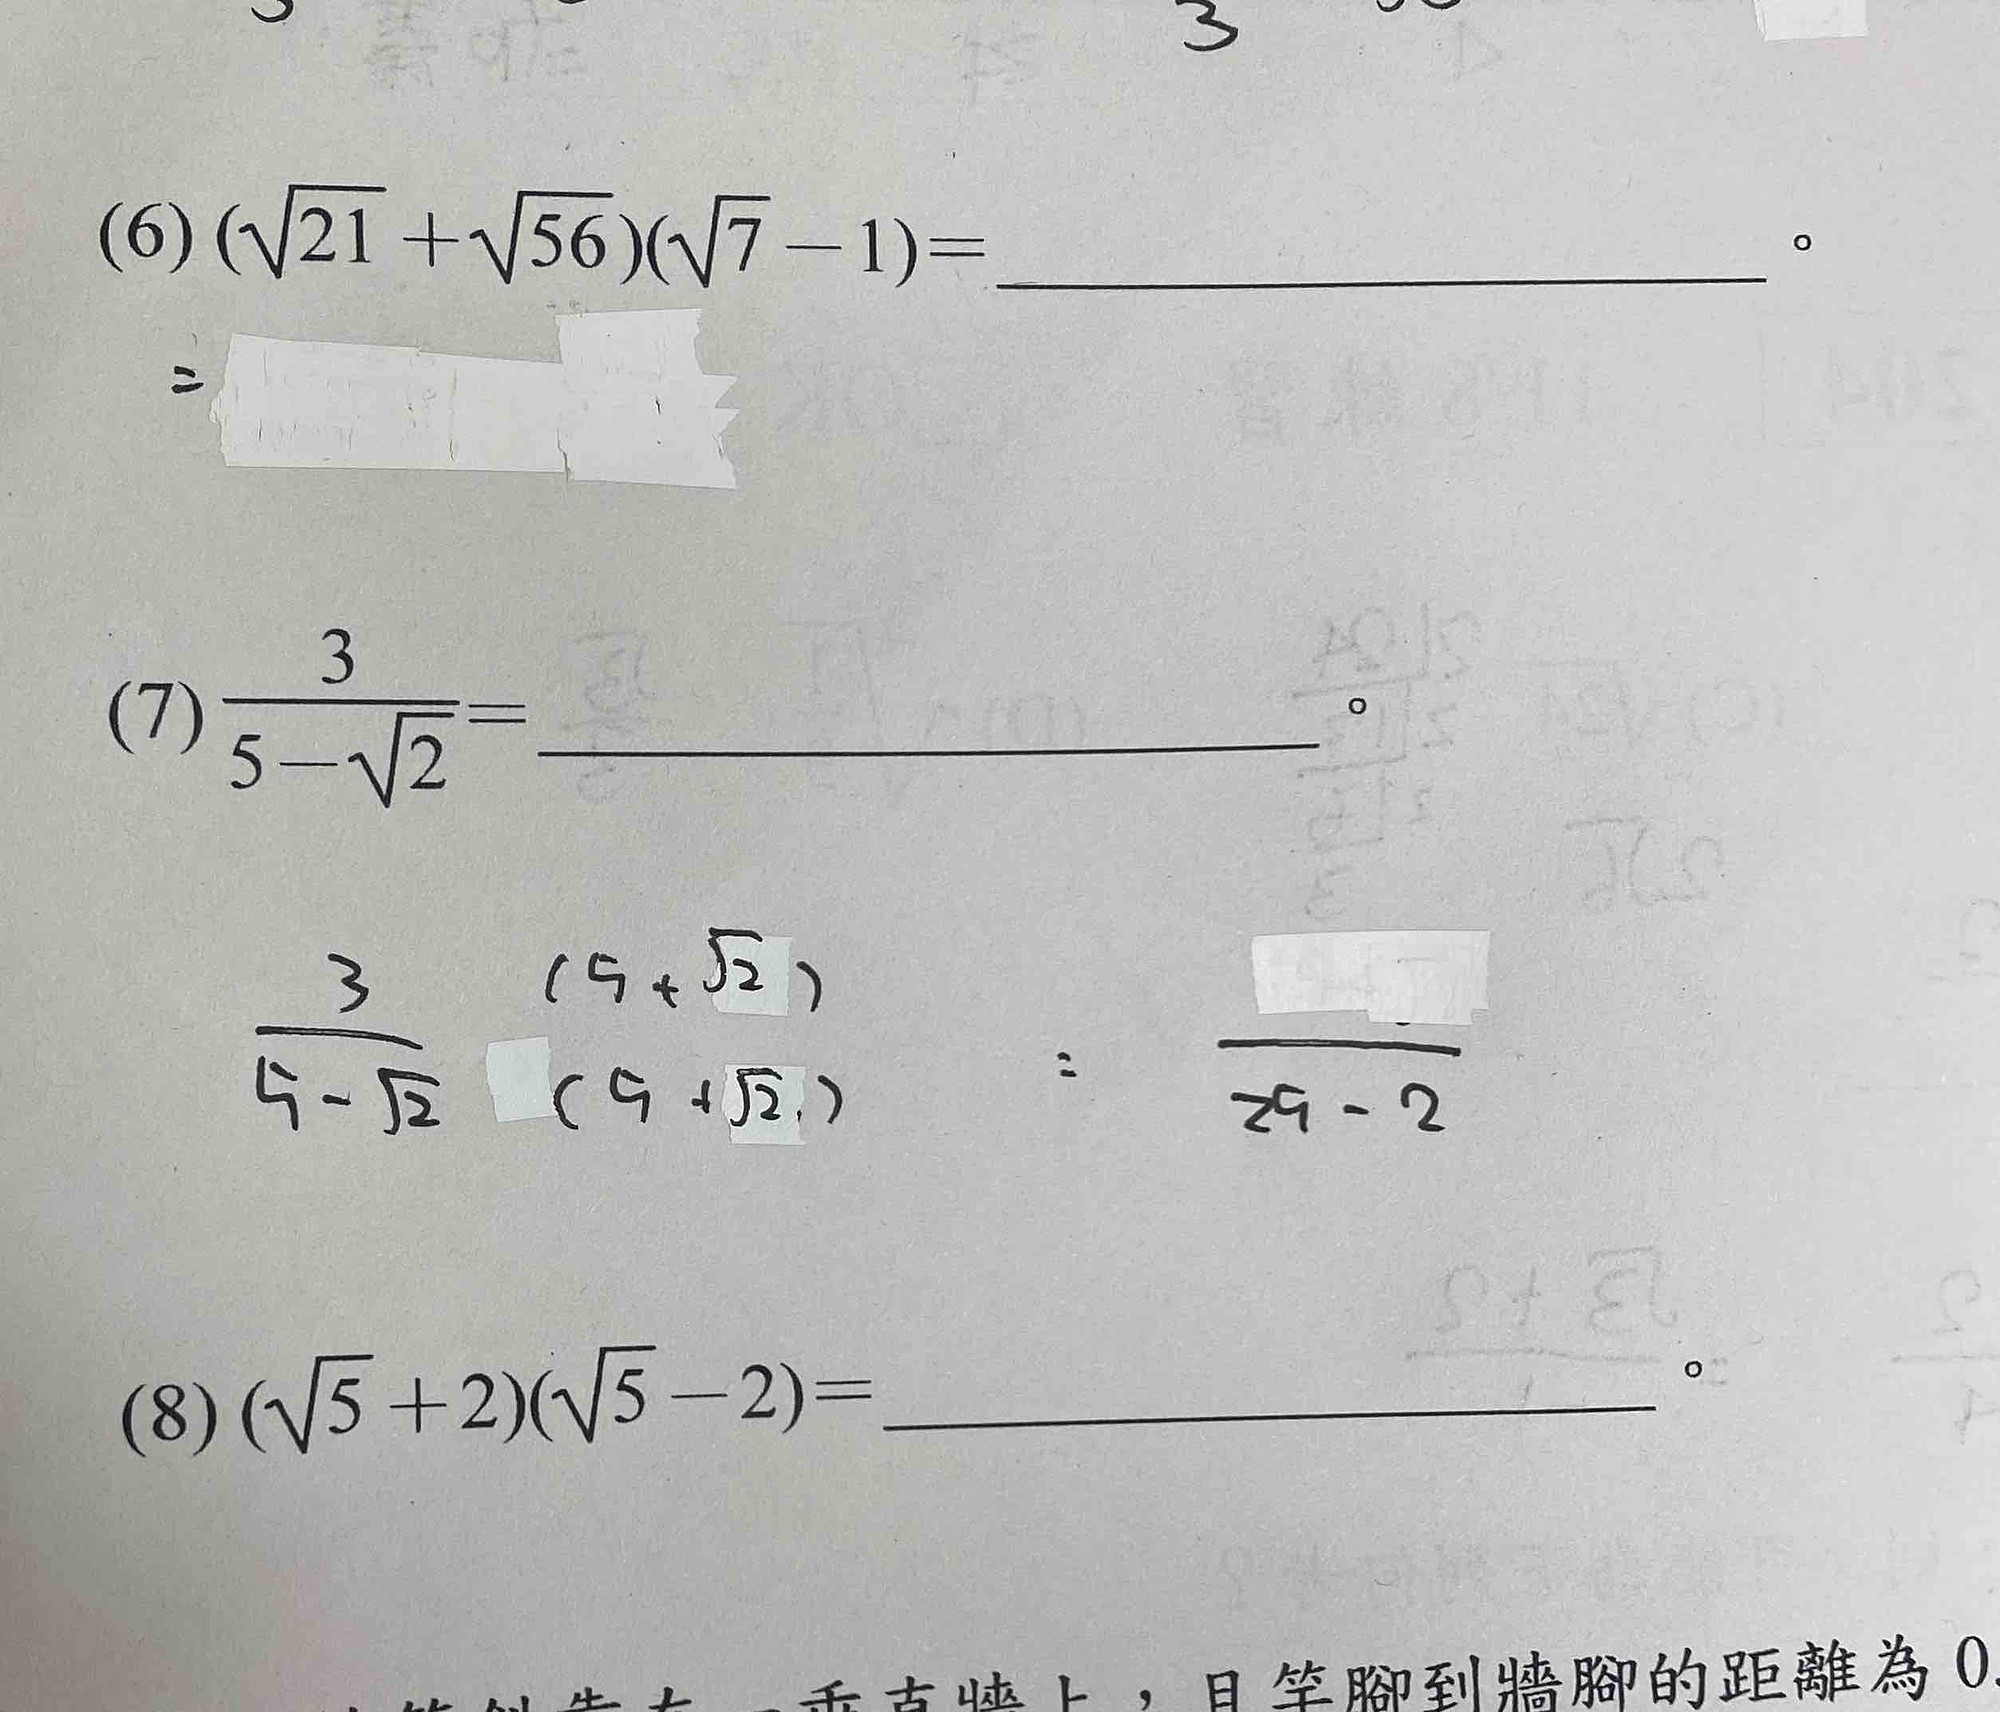 3
(6) (√21 + √56)(√7 − 1)=＿＿＿＿＿＿＿＿。
=
(7) 3/(5−√2)=＿＿＿＿＿＿＿＿。
3 (5 + √2)
5 - √2 (5 + √2) = 25 - 2
(8) (√5 + 2)(√5 − 2)=＿＿＿＿＿＿＿＿。
垂直牆上，且竿腳到牆腳的距離為 0.